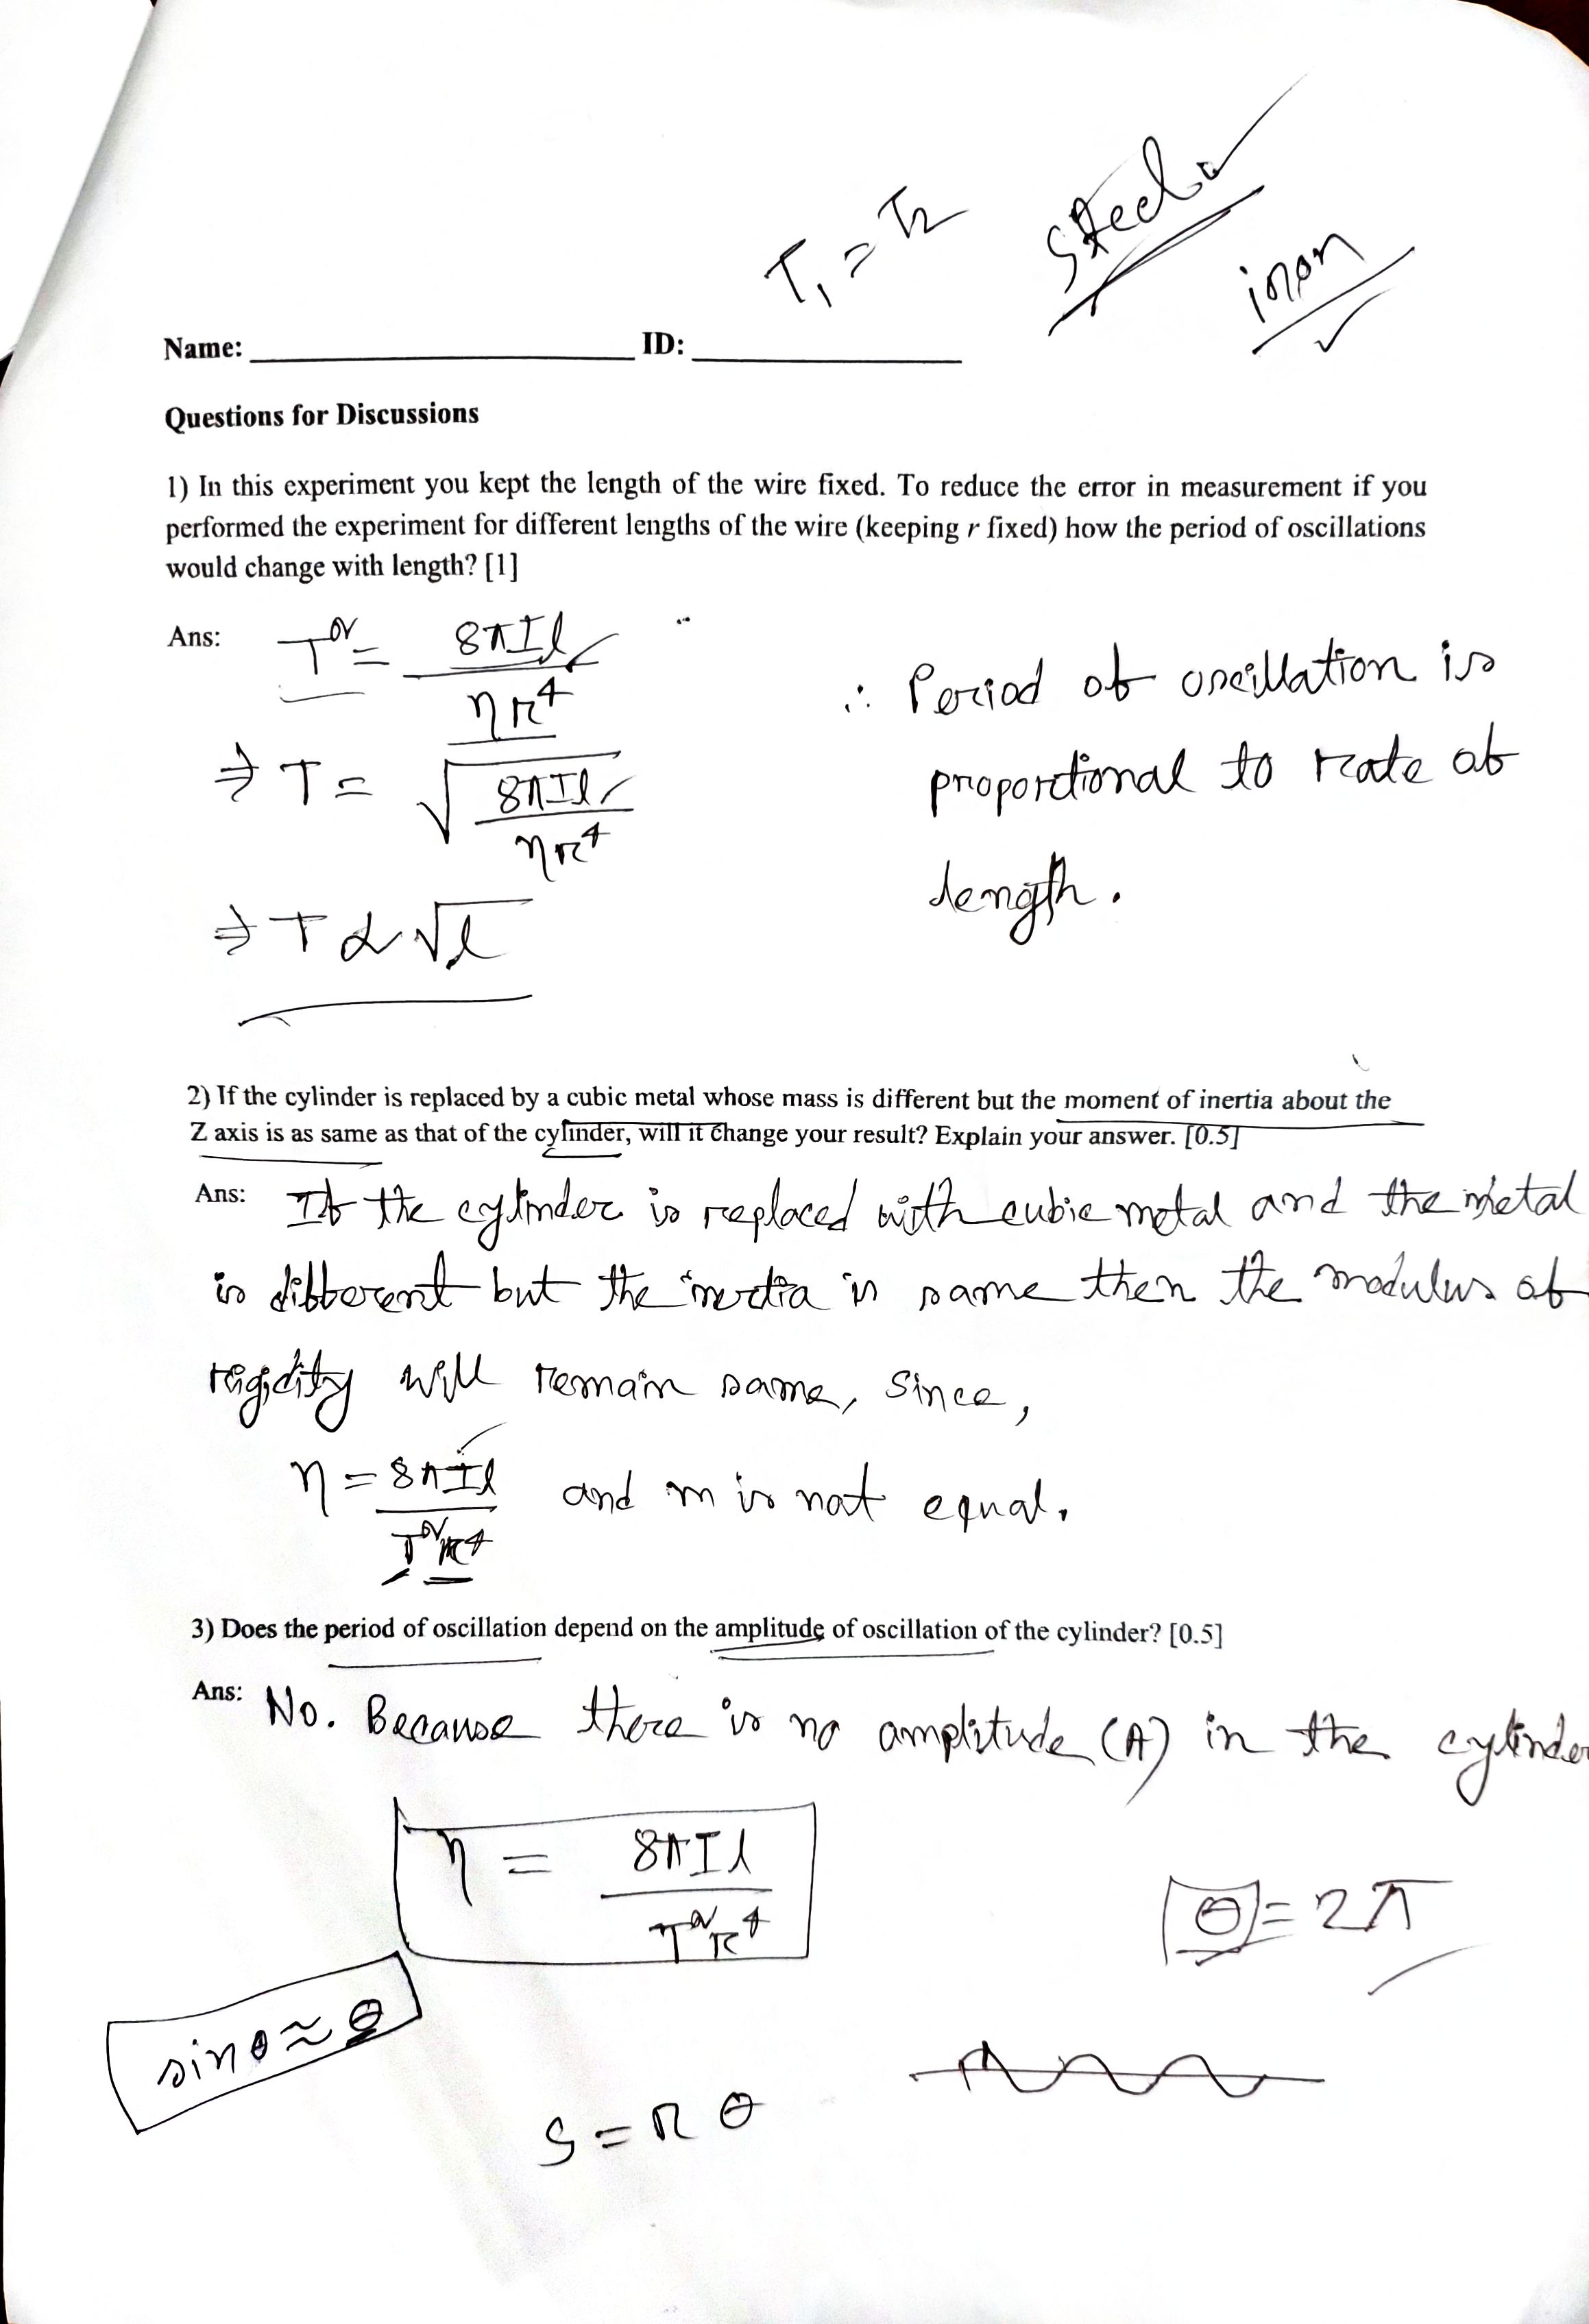 T₁ = T₂
Steel
iron
Name: ____________ ID: ____________
Questions for Discussions
1) In this experiment you kept the length of the wire fixed. To reduce the error in measurement if you
performed the experiment for different lengths of the wire (keeping r fixed) how the period of oscillations
would change with length? [1]
Ans: T² = 8πIl / ηr⁴
⇒ T = √(8πIl / ηr⁴)
⇒ T α √l
∴ Period of oscillation is
proportional to rate of
length.
2) If the cylinder is replaced by a cubic metal whose mass is different but the moment of inertia about the
Z axis is as same as that of the cylinder, will it change your result? Explain your answer. [0.5]
Ans: If the cylinder is replaced with cubic metal and the metal
is different but the inertia is same then the modulus of
rigidity will remain same, since,
η = 8πIl / T²r⁴ and m is not equal.
3) Does the period of oscillation depend on the amplitude of oscillation of the cylinder? [0.5]
Ans: No. Because there is no amplitude (A) in the cylinder
η = 8πIl / T²r⁴
θ = 2π
sinθ ≈ θ
S = rθ